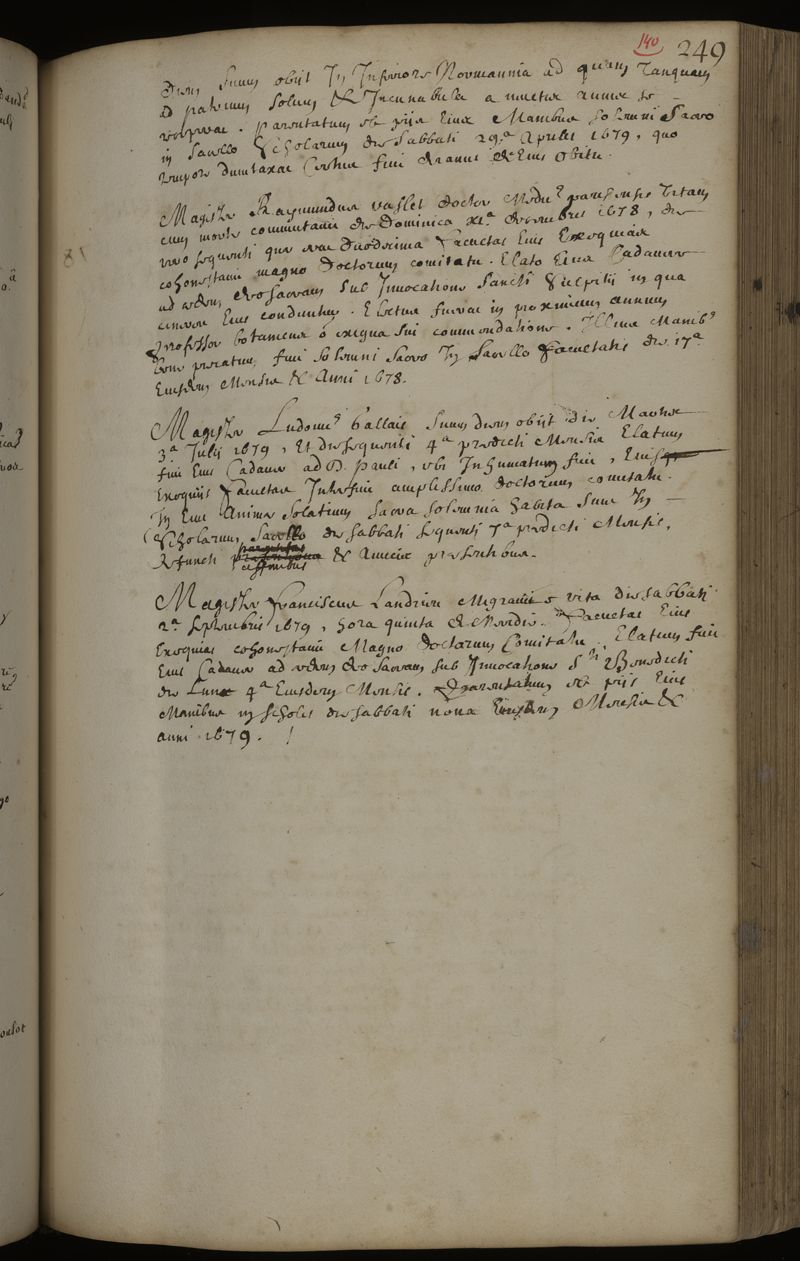 140 249
diem suum obiit In Inferiore Normannia ad quam Tanquam
ad patrium solum & Incunabula a multis annis se
receperat. parentatum est piis Eius Manibus solemni Sacro
in Sacello Scholarum die Sabbati 29.a Aprilis 1679, quo
tempore dumtaxat Certus fuit decanus de Eius Obitu.
Magister Raymundus vaslet doctor Medic9 parisiensis Vitam
cum morte commutavit die Dominica XI.a decembris 1678, die
vero sequenti quae erat duodecima Facultas Eius Exequias
cohonestavit magno doctorum comitatu. Elato Eius Cadavere
ad aedem deo sacram sub Invocatione Sancti Sulpitii in qua
cineres Eius conduntur. Electus fuerat in proximum annum
professor botanicus
bene precatum fuit solemni sacro In Sacello Facultatis die 17.a
Eiusdem Mensis & Anni 1678.
Magister Ludovic9 Gallais suum diem obiit die Martis
3.a Julii 1679, Et die sequenti 4.a praedicti Mensis Elatum
fuit Eius Cadaver ad D. Pauli, ubi Inhumatum fuit,
Exequiis Facultas Interfuit amplissimo doctorum comitatu.
In Eius Animae solatium sacra solemnia habita sunt In
Scholarum Sacello die sabbati sequenti 7.a praedicti Mensis,
defuncti affinibus & amicis praesentibus.
Magister Franciscus Landrieu Migravit e vita die sabbati
2.a septembris 1679, hora quinta de Meridie. Facultas Eius
Exequias cohonestavit Magno doctorum Comitatu. Elatum fuit
Eius Cadaver ad aedem deo sacram sub Invocatione S.ti Benedicti
die Lunae 4.a Eiusdem Mensis. Parentatum est piis Eius
Manibus in scholis die sabbati nona Eiusdem Mensis &
anni 1679.